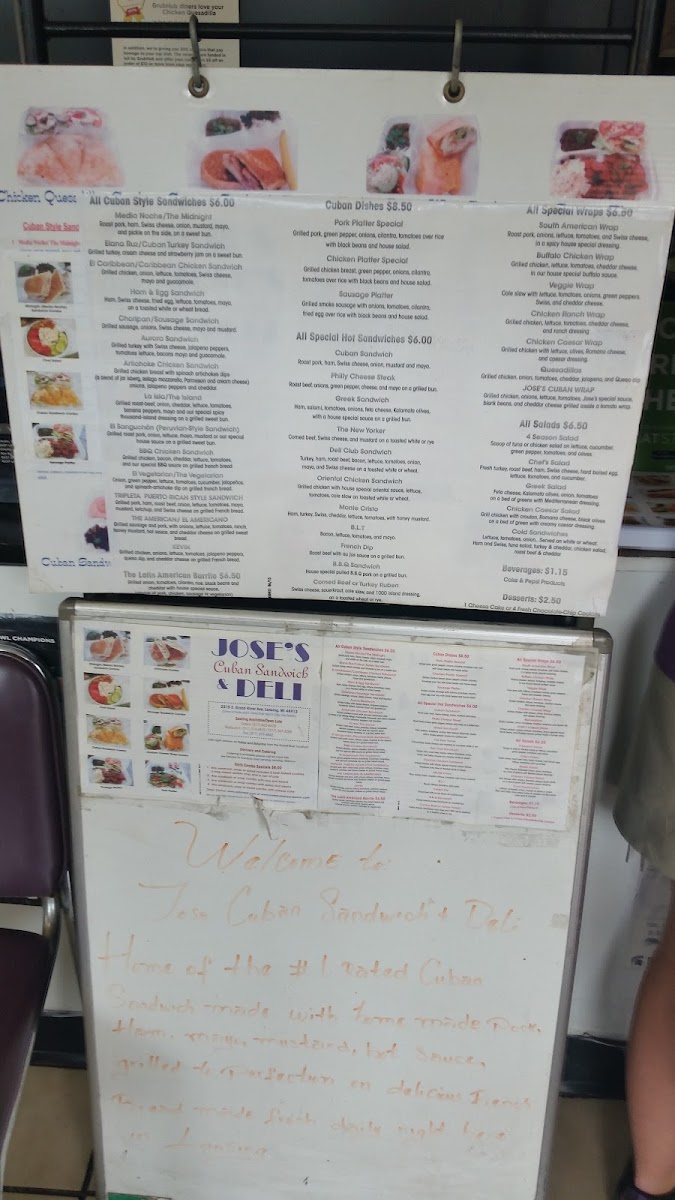 Grubhub diners love your
Chicken Quesadilla
Chicken Ques
Cuban Style Sand
Cuban Sandw
All Cuban Style Sandwiches $6.00
Media Noche/The Midnight
Roast pork, ham, Swiss cheese, onion, mustard, mayo,
and pickle on the side, on a sweet bun.
Elana Ruz/Cuban Turkey Sandwich
Grilled turkey, cream cheese and strawberry jam on a sweet bun.
El Caribbean/Caribbean Chicken Sandwich
Grilled chicken, onion, lettuce, tomatoes, Swiss cheese,
mayo and guacamole.
Ham & Egg Sandwich
Ham, Swiss cheese, fried egg, lettuce, tomatoes, mayo,
on a toasted white or wheat bread.
Choripan/Sausage Sandwich
Grilled sausage, onions, Swiss cheese, mayo and mustard.
Aurora Sandwich
Grilled turkey with Swiss cheese, jalapeno peppers,
tomatoes lettuce, bacons mayo and guacamole.
Artichoke Chicken Sandwich
Grilled chicken bread with spinach artichokes dips
onions, jalapeno peppers and cheddar.
La Isla/The Island
Grilled roast beef, onion, cheddar, lettuce, tomatoes,
banana peppers, mayo and our special spicy
thousand-island dressing on a grilled sweet bun.
El Sanguchón (Peruvian-Style Sandwich)
Grilled roast pork, onion, lettuce, mayo, mustard or our special
house sauces on a grilled sweet bun.
BBQ Chicken Sandwich
Grilled chicken, bacon, cheddar, lettuce, tomatoes,
and our special BBQ sauce on grilled french bread.
El Vegetarian/The Vegetarian
Onion, green pepper, tomatoes, cucumber, jalapeños,
and spinach-artichoke dip on grilled french bread.
TRIPLETA, PUERTO RICAN STYLE SANDWICH
Grilled pork, ham, roast beef, onion, lettuce, tomatoes, mayo,
mustard, ketchup, and Swiss cheese on grilled french bread.
THE AMERICAN/ EL AMERICANO
Grilled sausage and pork, with onions, lettuce, tomatoes, ranch,
honey mustard, hot sauce, and cheddar cheese on grilled sweet
bread.
KEVIN
Grilled chicken, onions, lettuce, tomatoes, jalapeno peppers,
queso dip, and cheddar cheese on grilled French bread.
The Latin American Burrito $6.50
Grilled onion, tomatoes, cilantro, rice, black beans and
cheddar with house special sauce.
Cuban Dishes $8.50
Pork Platter Special
Grilled pork, green pepper, onions, cilantro, tomatoes over rice
with black beans and house salad.
Chicken Platter Special
Grilled chicken breast, green pepper, onions, cilantro,
tomatoes over rice with black beans and house salad.
Sausage Platter
Grilled smoke sausage with onions, tomatoes, cilantro,
fried egg over rice with black beans and house salad.
All Special Hot Sandwiches $6.00
Cuban Sandwich
Roast pork, ham, Swiss cheese, onion, mustard and mayo.
Philly Cheese Steak
Roast beef, onions, green pepper, cheese, and mayo on a grilled bun.
Greek Sandwich
Ham, salami, tomatoes, onions, feta cheese, Kalamata olives,
with a house special sauce on a grilled bun.
The New Yorker
Corned beef, Swiss cheese, and mustard on a toasted white or rye
Deli Club Sandwich
Turkey, ham, roast beef, bacon, lettuce, tomatoes, onion,
mayo, and Swiss cheese on a toasted white or wheat.
Oriental Chicken Sandwich
Grilled chicken with house special oriental sauce, lettuce,
tomatoes, cole slaw on toasted white or wheat.
Monte Cristo
Ham, turkey, Swiss, cheddar, lettuce, tomatoes, with honey mustard.
B.L.T
Bacon, lettuce, tomatoes, and mayo.
French Dip
Roast beef with au jus sauce on a grilled bun.
B.B.Q Sandwich
House special pulled B.B.Q pork on a grilled bun.
Corned Beef or Turkey Ruben
Swiss cheese, sourkrout, cole slaw, and 1000 island dressing,
on a toasted wheat or rye.
All Special Wraps $6.50
South American Wrap
Roast pork, onions, lettuce, tomatoes, and Swiss cheese,
in a spicy house special dressing.
Buffalo Chicken Wrap
Grilled chicken, lettuce, tomatoes, cheddar cheese,
in our house special buffalo sauce.
Veggie Wrap
Cole slaw with lettuce, tomatoes, onions, green peppers,
Swiss, and cheddar cheese.
Chicken Ranch Wrap
Grilled chicken, lettuce, tomatoes, cheddar cheese,
and ranch dressing.
Chicken Caesar Wrap
Grilled chicken with lettuce, olives, Romano cheese,
and caesar dressing.
Quesadillas
Grilled chicken, onion, tomatoes, cheddar, jalapeno, and Queso dip
JOSE'S CUBAN WRAP
Grilled chicken, onions, lettuce, tomatoes, Jose's special sauce,
black beans, and cheddar cheese grilled inside a tomato wrap.
All Salads $6.50
4 Season Salad
Scoop of tuna or chicken salad on lettuce, cucumber,
green pepper, tomatoes, and olives.
Chef's Salad
Fresh turkey, roast beef, ham, Swiss cheese, hard boiled egg,
lettuce, tomatoes, and cucumber.
Greek Salad
Feta cheese, Kalamata olives, onion, tomatoes
on a bed of greens with Mediterranean dressing.
Chicken Caesar Salad
Grill chicken with crouton, Romano cheese, black olives
on a bed of green with creamy caesar dressing.
Cold Sandwiches
Lettuce, tomatoes, onion.. Served on white or wheat.
Ham and Swiss, tuna salad, turkey & cheddar, chicken salad,
roast beef & cheddar
Beverages: $1.15
Coke & Pepsi Products
Desserts: $2.50
1 Cheese Cake or 4 Fresh Chocolate-Chip Cookies
WL CHAMPIONS
JOSE'S
Cuban Sandwich
& DELI
All Cuban Style Sandwiches $6.00
Cuban Dishes $8.50
All Special Wraps $6.50
Welcome to:
Jose Cuban Sandwich & Deli
Home of the #1 rated Cuban
Sandwich made with home made Pork,
Ham, mayo, mustard, hot sauce,
grilled to perfection on delicious French
Bread made fresh daily right here
in Lansing